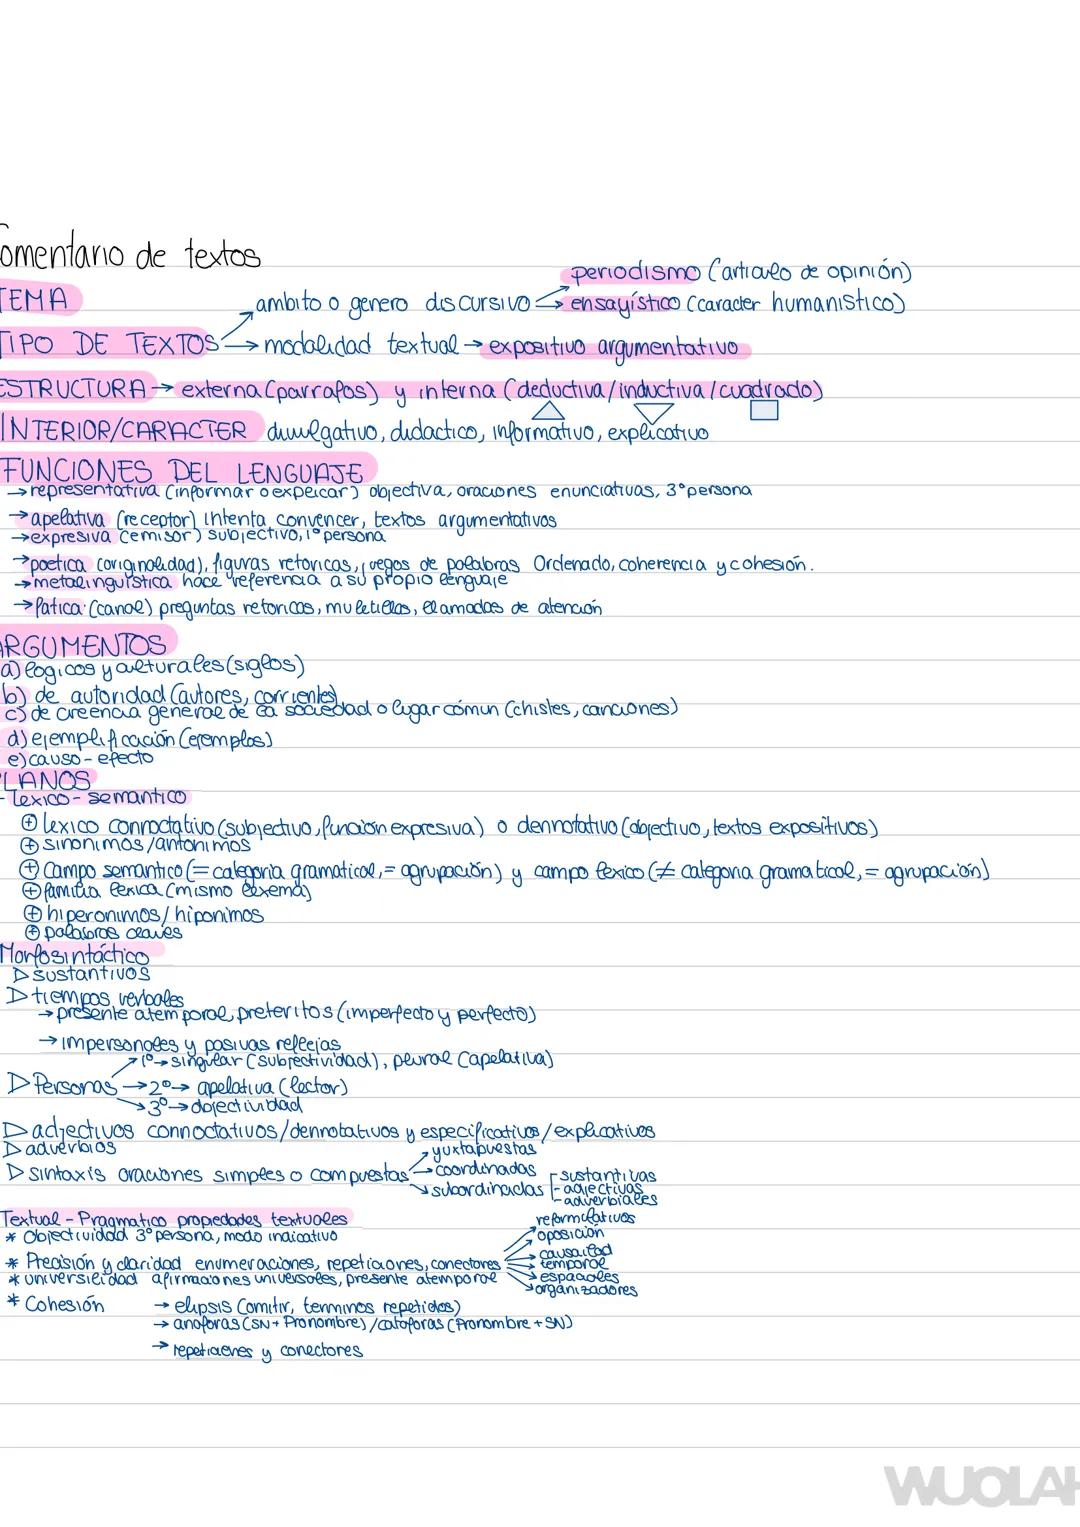 omentario de textos
periodismo (articulo de opinión)
TEMA
ambito o genero discursivo → ensayístico (caracter humanistico)
TIPO DE TEXTOS → modalidad textual → expositivo argumentativo
ESTRUCTURA → externa (parrafos) y interna (deductiva/inductiva/cuadrado)
INTERIOR/CARACTER divulgativo, didactico, informativo, explicativo
FUNCIONES DEL LENGUAJE
→ representativa (informar o explicar) objectiva, oraciones enunciativas, 3º persona
→ apelativa (receptor) intenta convencer, textos argumentativos
→ expresiva (emisor) subjectivo, 1º persona
→ poetica (originalidad), figuras retoricas, juegos de palabras Ordenado, coherencia y cohesión.
→ metalinguistica hace referencia a su propio lenguaje
→ fatica: (canal) preguntas retoricas, muletillas, llamadas de atención
ARGUMENTOS
a) logicos y culturales (siglos)
b) de autoridad (autores, corrientes)
c) de creencia general de la sociedad o lugar común (chistes, canciones)
d) ejemplificación (ejemplos)
e) causa-efecto
PLANOS
- Lexico-semantico
⊕ lexico connoctativo (subjectivo, función expresiva) o dennotativo (objectivo, textos expositivos)
⊕ sinonimos/antonimos
⊕ campo semantico (= categoria gramatical, = agrupación) y campo lexico (≠ categoria gramatical, = agrupación)
⊕ familia lexica (mismo lexema)
⊕ hiperonimos/hiponimos
⊕ palabras claves
Morfosintáctico
▷ sustantivos
▷ tiempos verbales
→ presente atemporal, preteritos (imperfecto y perfecto)
→ impersonales y pasivas reflejas
1º → singular (subjectividad), plural (apelativa)
▷ Personas → 2º → apelativa (lector)
→ 3º → objectividad
▷ adjectivos connoctativos/dennotativos y especificativos/explicativos
▷ adverbios
→ yuxtapuestas
▷ sintaxis oraciones simples o compuestas → coordinadas
→ subordinadas - sustantivas
- adjectivas
- adverbiales
Textual - Pragmatico propiedades textuales
reformulativos
* Objectividad 3º persona, modo indicativo
oposición
causalidad
* Precisión y claridad enumeraciones, repeticiones, conectores → temporal
* universilidad afirmaciones universales, presente atemporal → espaciales
→ organizadores
* Cohesión → elipsis (omitir, terminos repetidos)
→ anaforas (SN + Pronombre) / cataforas (Pronombre + SN)
→ repeticiones y conectores
WUOLAH